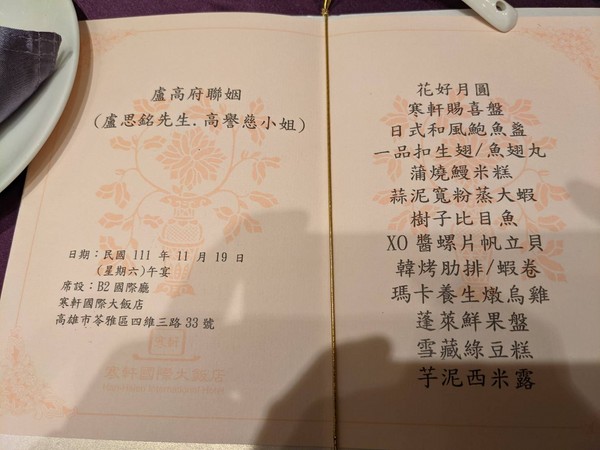 盧高府聯姻
(盧思銘先生.高譽慈小姐)
日期：民國 111 年 11 月 19 日
(星期六)午宴
席設：B2 國際廳
寒軒國際大飯店
高雄市苓雅區四維三路 33 號
寒軒
寒軒國際大飯店
花好月圓
寒軒賜喜盤
日式和風鮑魚盞
一品扣生翅/魚翅丸
蒲燒鰻米糕
蒜泥寬粉蒸大蝦
樹子比目魚
XO 醬螺片帆立貝
韓烤肋排/蝦卷
瑪卡養生燉烏雞
蓬萊鮮果盤
雪藏綠豆糕
芋泥西米露